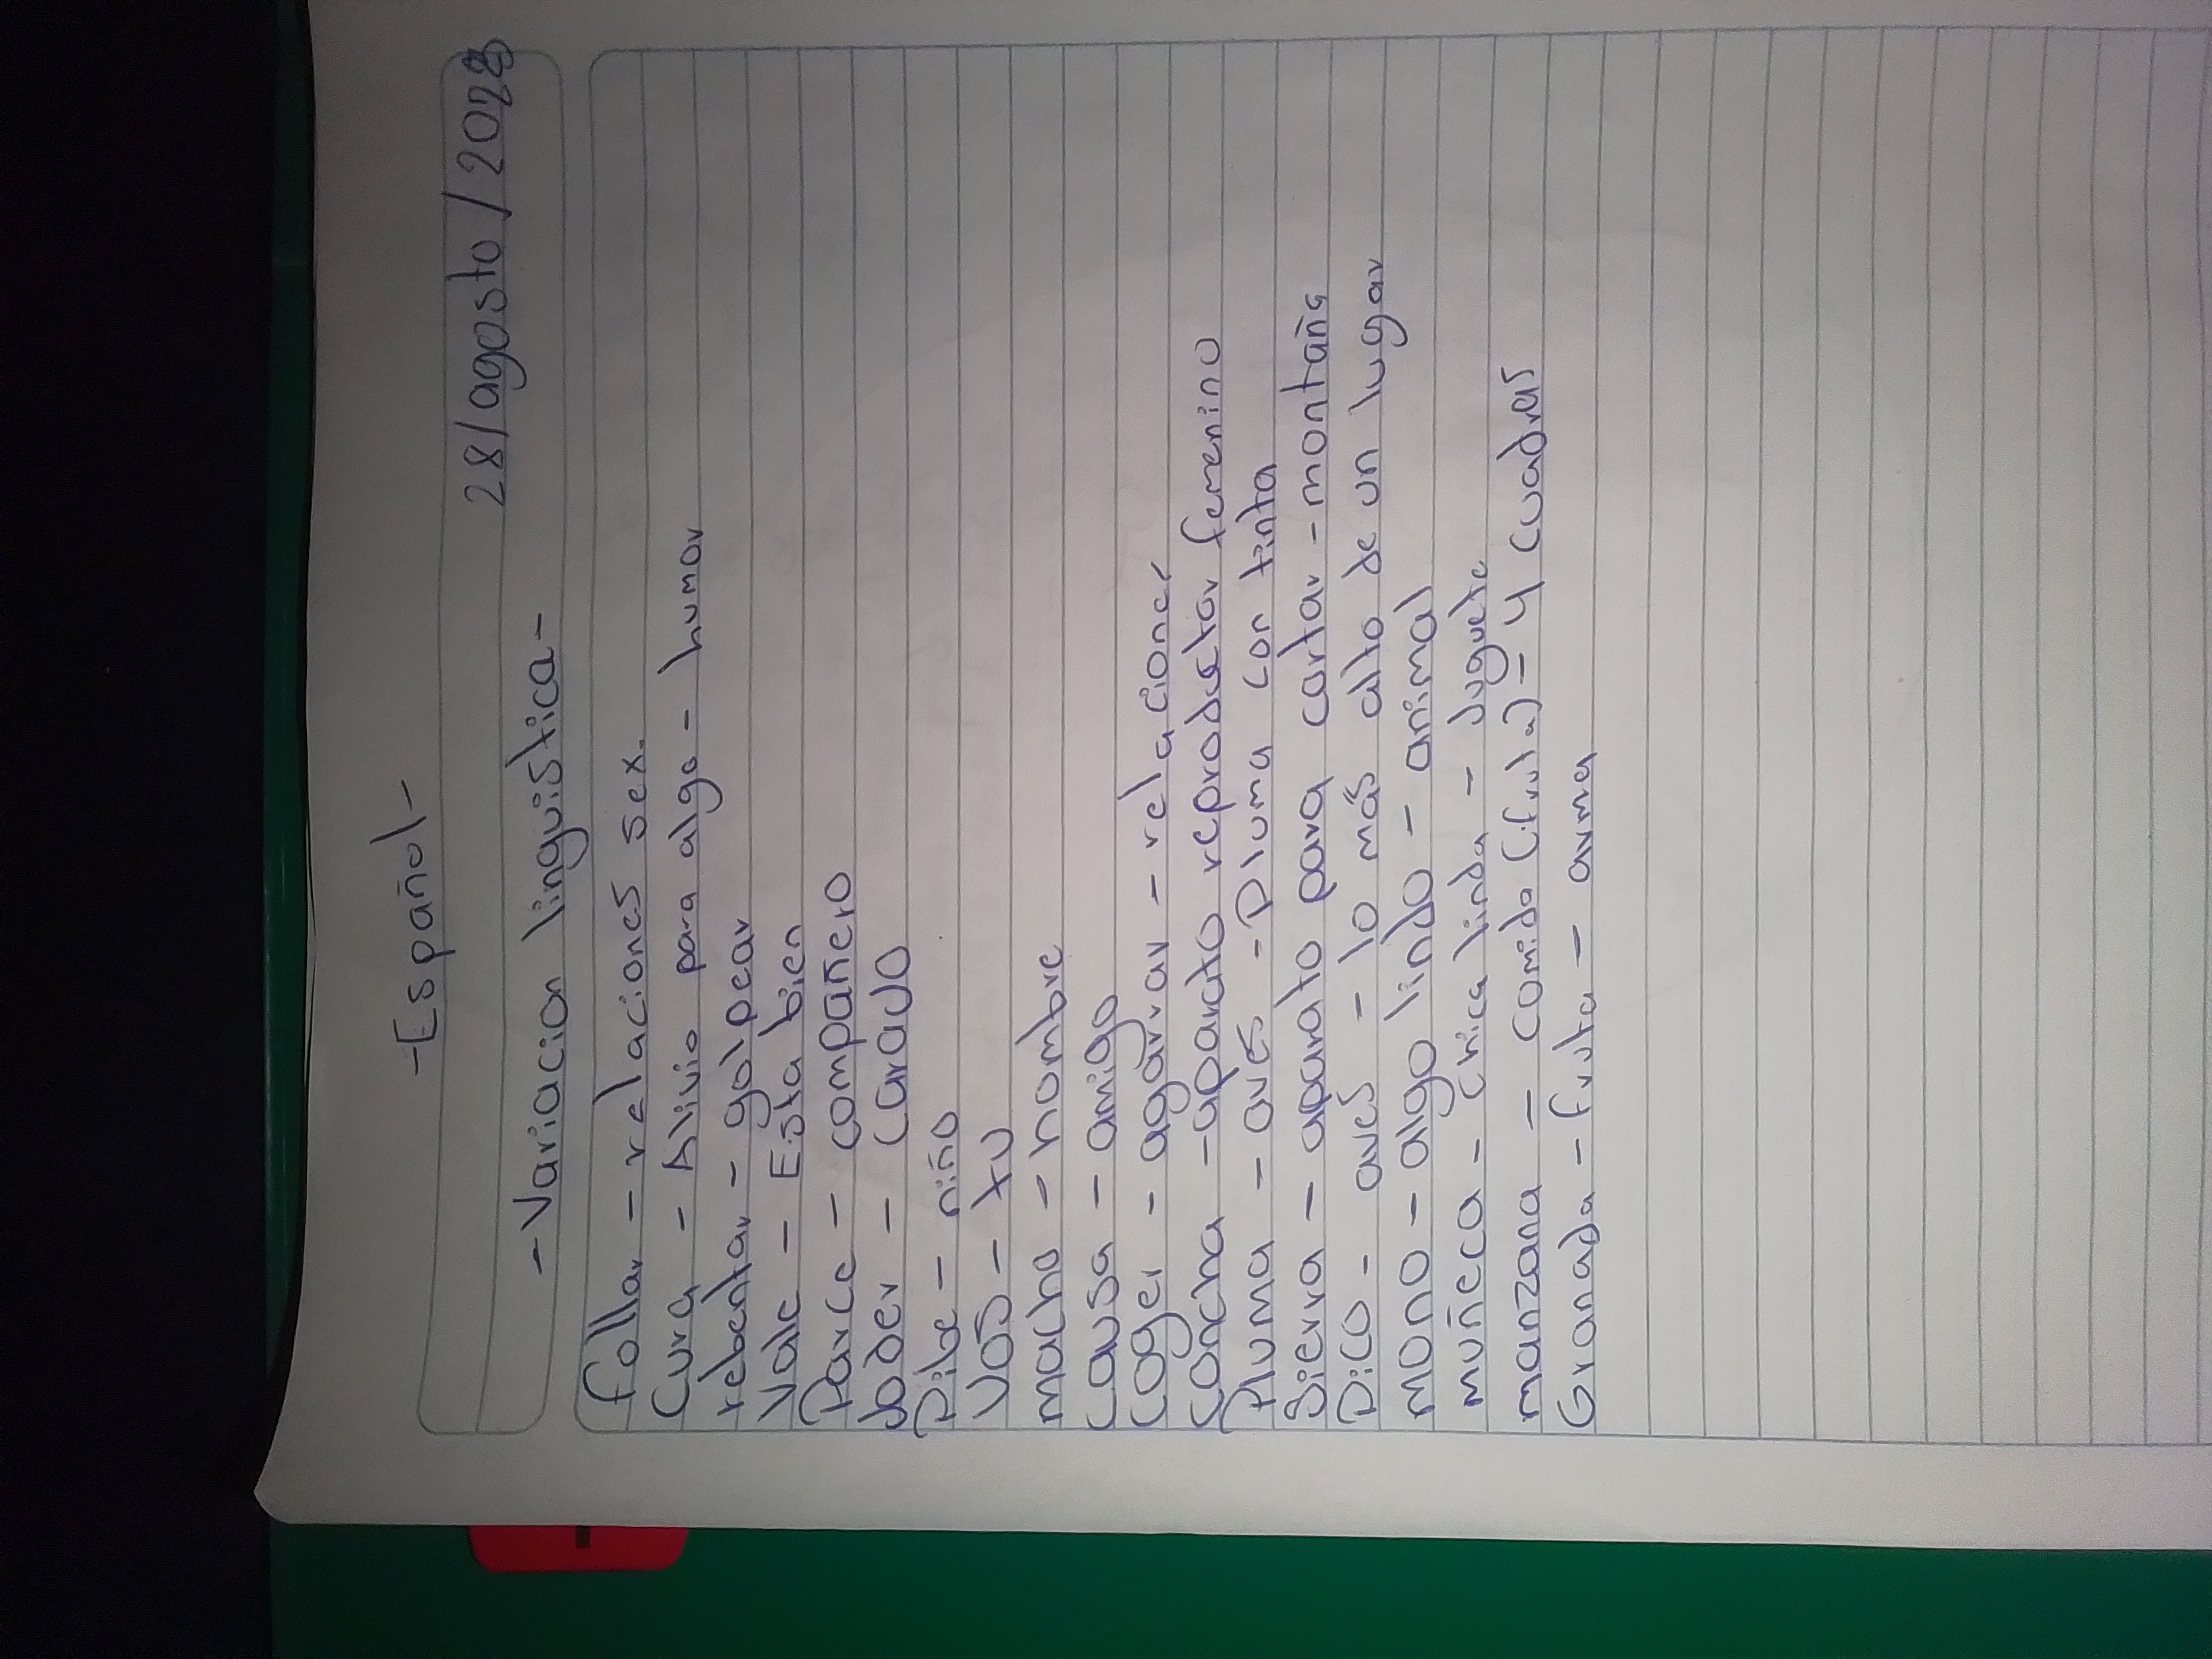 -Español-
28/agosto/2023
-Variacion linguistica-
follar - relaciones sex.
Cura - Alivio para algo - humor
rebentar - golpear
Vale - Esta bien
Parce - compañero
Joder - carajo
Pibe - niño
Vos - tu
macho - hombre
Causa - amigo
Coger - agarrar - relaciones
Concha - aparato reproductor femenino
Pluma - aves - Pluma con tinta
Sierra - aparato para cortar - montaña
Pico - aves - lo más alto de un lugar
mono - algo lindo - animal
muñeca - chica linda - juguete
manzana - comida (fruta) - 4 cuadras
Granada - fruta - arma